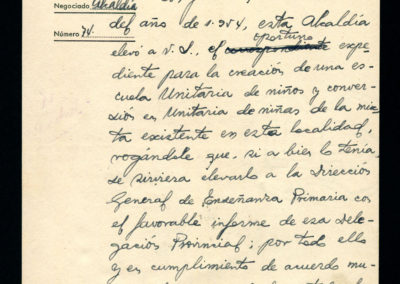 Negociado Alcaldía
Número 74.
del año de 1.954, esta Alcaldía
oportuno
elevó a V.S., el correspondiente expe-
diente para la creación de una es-
cuela Unitaria de niños y conver-
sión en Unitaria de niñas de la mix-
ta existente en esta localidad,
rogándole que, si a bien lo tenía
se sirviera elevarlo a la Dirección
General de Enseñanza Primaria con
el favorable informe de esa Dele-
gación Provincial; por todo ello
y en cumplimiento de acuerdo mu-